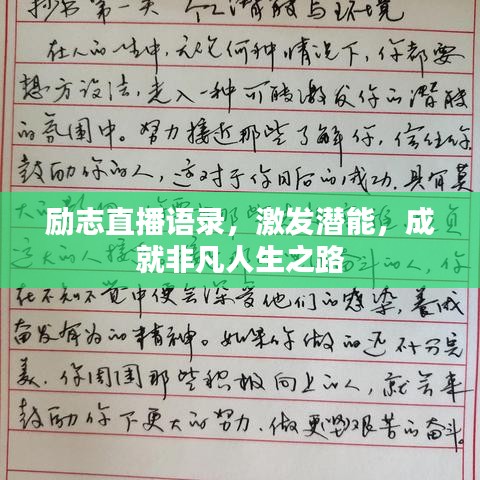 抄书第一天 个人潜能与环境
在人的一生中,无论何种情况下,你都要
想方设法,走入一种可能激发你的潜能
的氛围中。努力接近那些了解你,信任你
鼓励你的人,这对于你日后的成功,具有莫
励志直播语录，激发潜能，成
就非凡人生之路
奋斗的人,你
在不知不觉中便会深受他们的感染,养成
奋发有为的精神。如果你做的还不十分完
美,你周围那些积极向上的人,就会来
鼓励你下更大的努力,做更坚艰苦的奋斗。